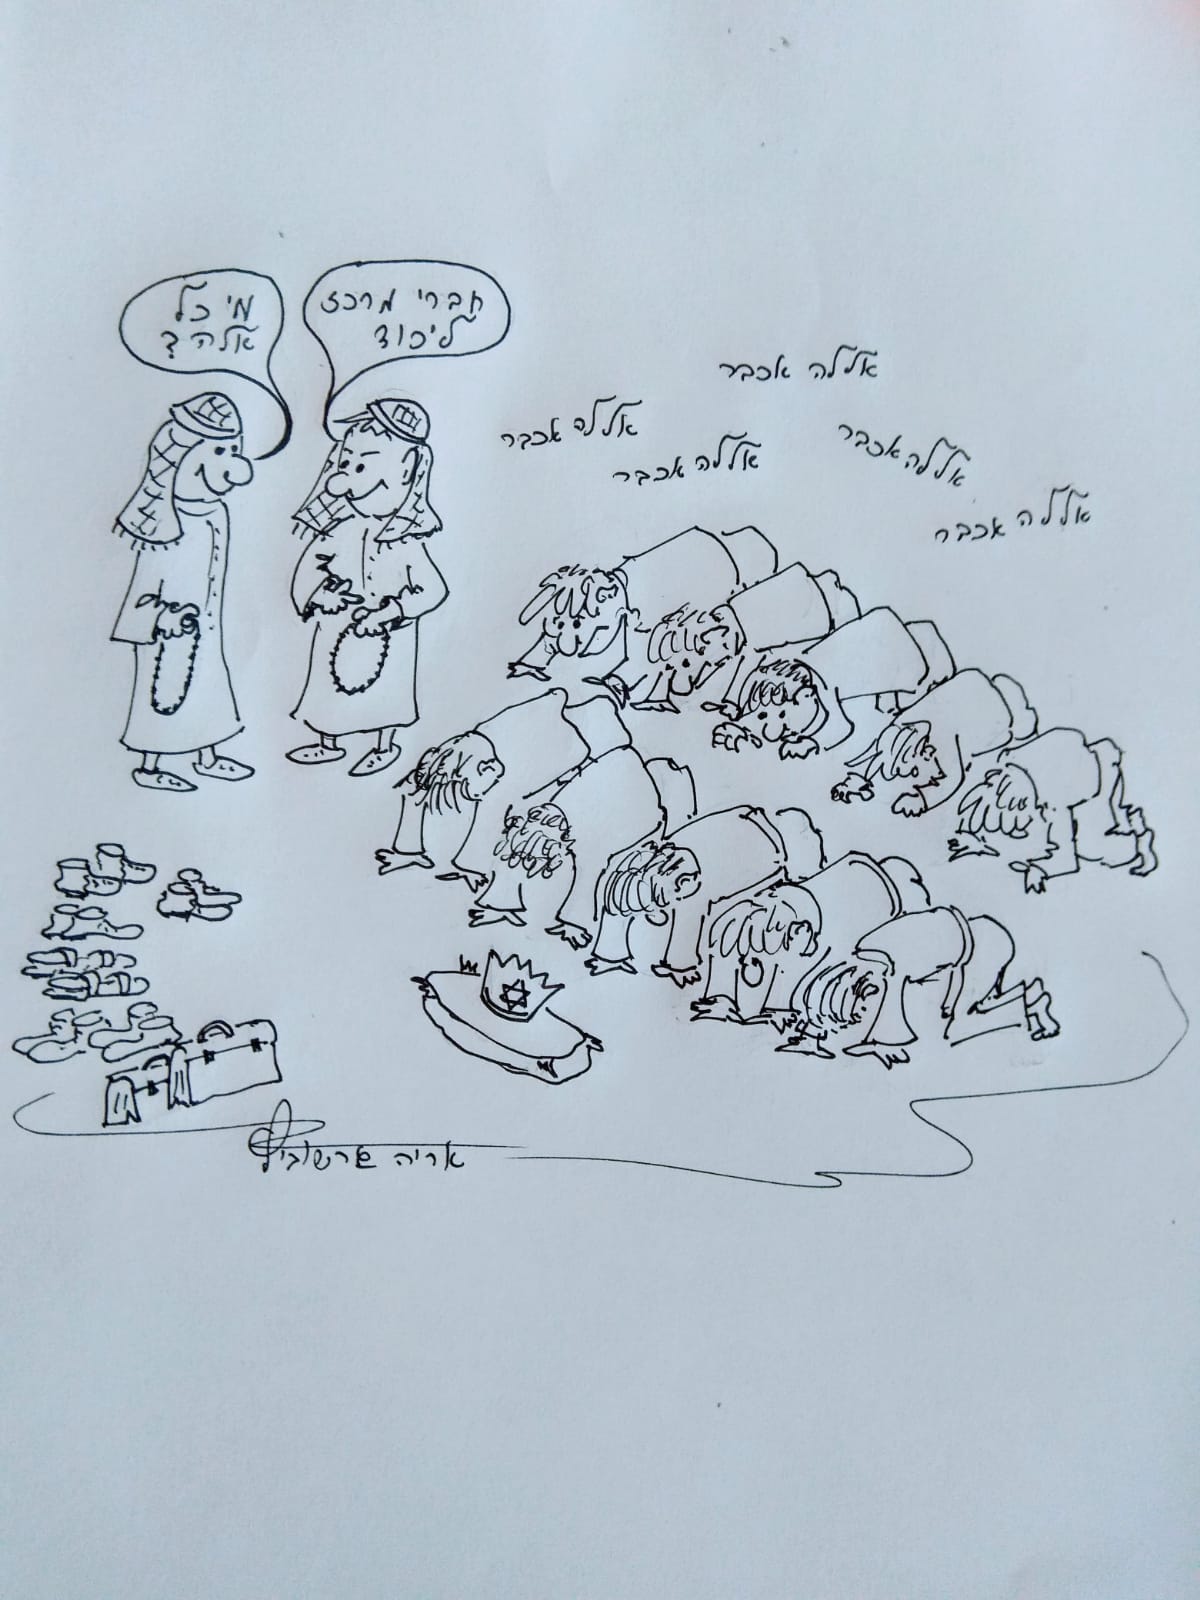 מי כל
אלה?
חברי מרכז
ליכוד
אללה אכבר
אללה אכבר
אללה אכבר
אללה אכבר
אללה אכבר
אריה